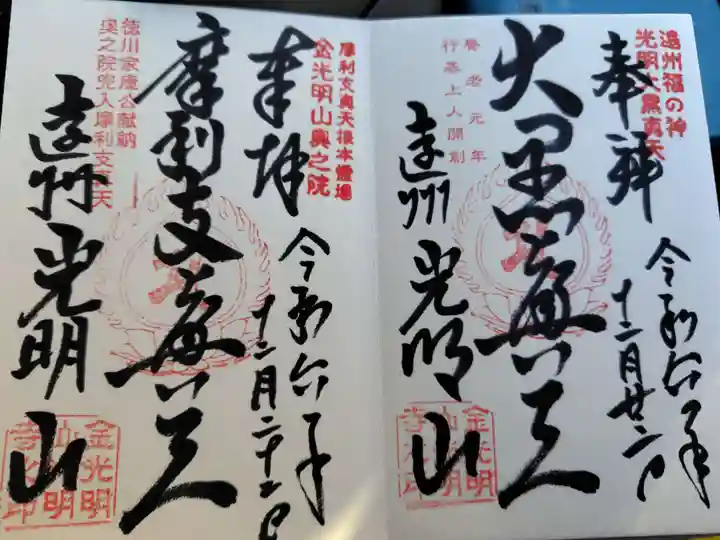 遠州福の神
光明大黒真天
奉拝
令和六年
十二月廿二日
大黒真天
養老元年
行基上人開創
遠州光明山
金光明
山光明
寺之印
摩利支真天根本霊場
金光明山奥之院
奉拝
令和六年
十二月二十二日
摩利支真天
徳川家康公献納
奥之院兜入摩利支真天
遠州光明山
金光明
山光明
寺之印